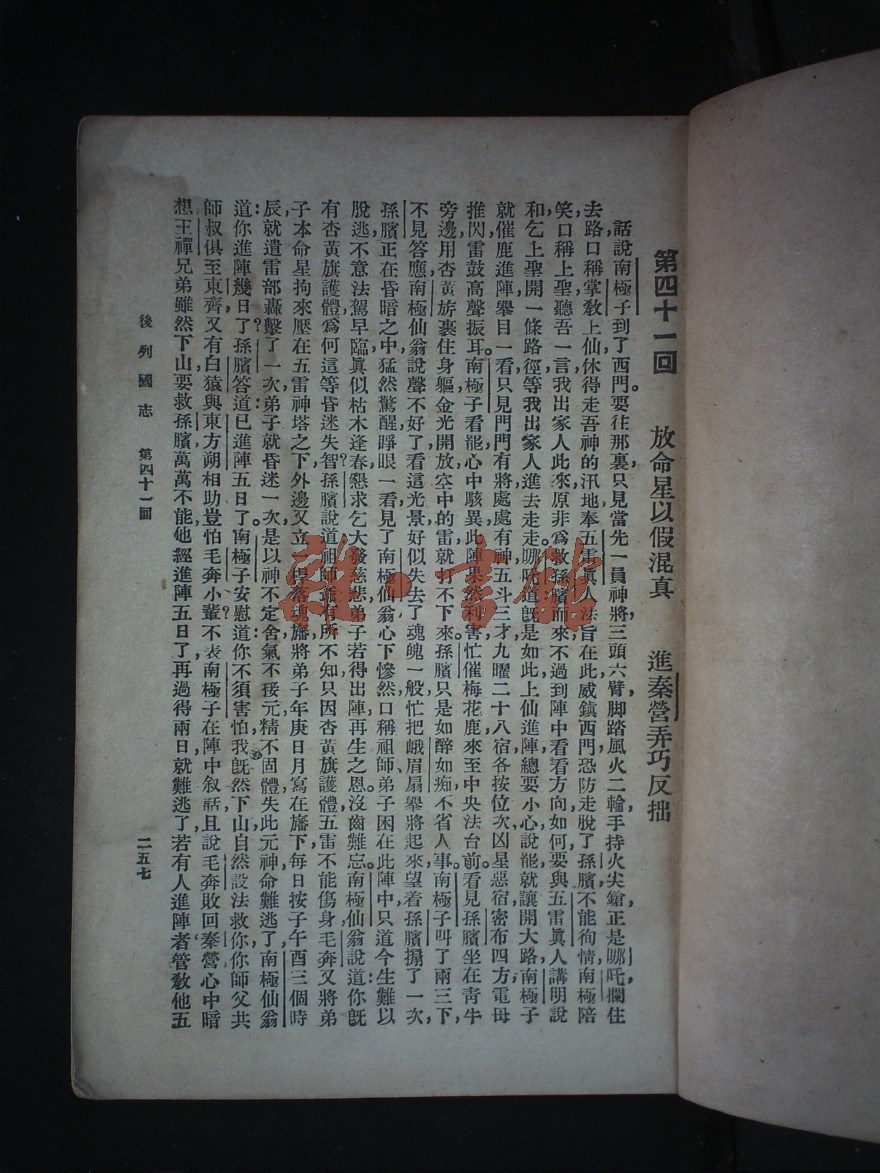 第四十一回　放命星以假混真　進秦營弄巧反拙
話說南極子到了西門。要往那裏，只見當先一員神將，三頭六臂，脚踏風火二輪，手持火尖鎗，正是哪吒，攔住
去路，口稱掌敎上仙休得走，吾神的汛地，奉五雷眞人法旨，在此威鎮西門，恐防走脫了孫臏，不能徇情，南極陪
笑，口稱上聖聽吾一言，我出家人此來，原非爲救孫臏而來，不過到陣中看看方向，如何要與五雷眞人講明說
和，乞上聖開一條路徑，等我出家人進去走走。哪吒道，旣是如此，上仙進陣，總要小心，說罷，就讓開大路，南極子
就催鹿進陣，舉目一看，只見門門有將，處處有神，五斗三才，九曜二十八宿，各按位次，凶星惡宿，密布四方，電母
推閃，雷鼓高聲振耳。南極子看罷，心中駭異，此陣果然利害，忙催梅花鹿來至中央法台前。看見孫臏坐在靑牛
旁邊，用杏黃旂裹住身軀，金光開放，空中的雷就一不下來。孫臏只是如醉如痴，不省人事。南極子叫了兩三下，
不見答應，南極仙翁說聲不好了，看這光景，好似失去了魂魄一般，忙把峨眉扇舉將起來，望着孫臏搧了一次，
孫臏正在昏暗之中，猛然驚醒，睜眼一看，見了南極仙翁，心下慘然，口稱祖師，弟子困在此陣中，只道今生難以
脫逃，不意法駕早臨，眞似枯木逢春，懇求乞大發慈悲，弟子若得出陣，再生之恩，沒齒難忘。南極仙翁說道，你旣
有杏黃旗護體，爲何這等昏迷失智？孫臏說道，祖師爺有所不知，只因杏黃旗護體，五雷不能傷身，毛奔又將弟
子本命星拘來，壓在五雷神塔之下，外邊又立一桿落魂旛，將弟子年庚日月寫在旛下，每日按子午酉三個時
辰，就遣雷部轟擊了一次，弟子就昏迷一次。是以神不定舍，氣不接元，精不固體，失此元神，命難逃了，南極仙翁
道：你進陣幾日了？孫臏答道，已進陣五日了。南極子安慰道：你不須害怕，我旣然下山，自然設法救你，你師父共
師叔俱至東齊，又有白猿與東方朔相助，豈怕毛奔小輩？不表南極子在陣中叙話，且說毛奔敗回秦營，心中暗
想，王禪兄弟雖然下山，要救孫臏，萬萬不能，他經進陣五日了，再過得兩日，就難逃了，若有人進陣者，管敎他五
後列國志　第四十一回　二五七